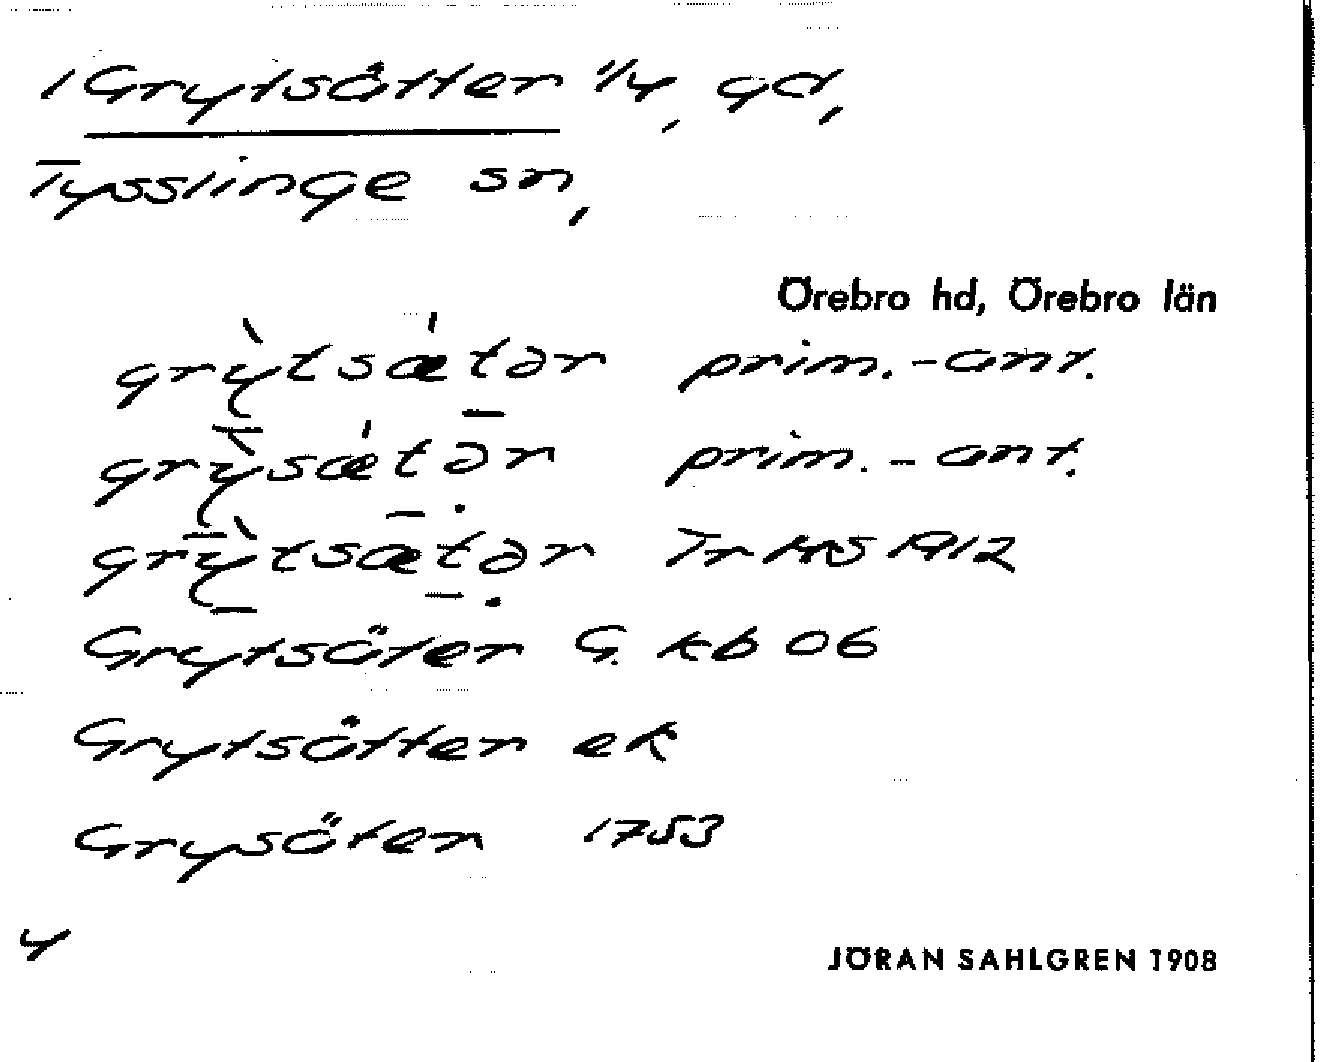 1 Grytsätter 1/4, gd,
Tysslinge sn,
Örebro hd, Örebro län
grỳtsǽtər prim.-ant.
grỳsǽtər prim.-ant.
grỳtsætər Tr HS 1912
Grytsäter G. kb 06
Grytsätter ek
Grysäter 1753
4
JÖRAN SAHLGREN 1908